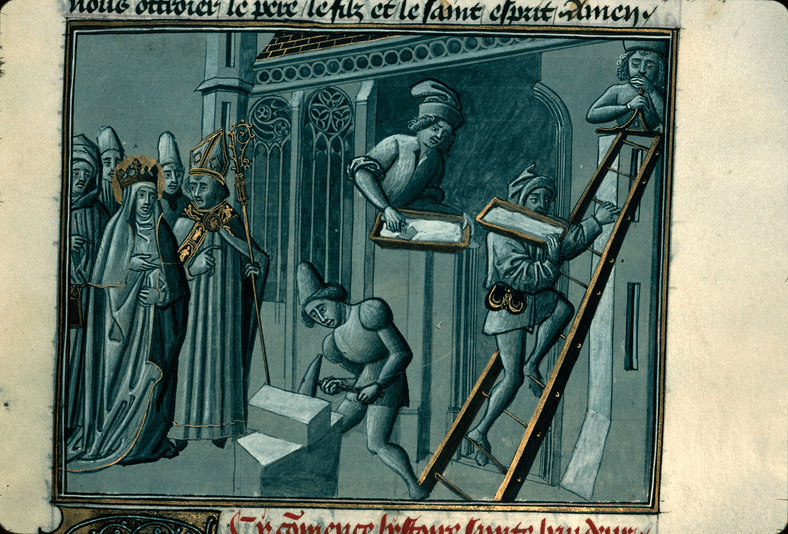 nous ottroier le pere / le filz et le saint esprit. Amen.
Cy cōmence lystoire sainte